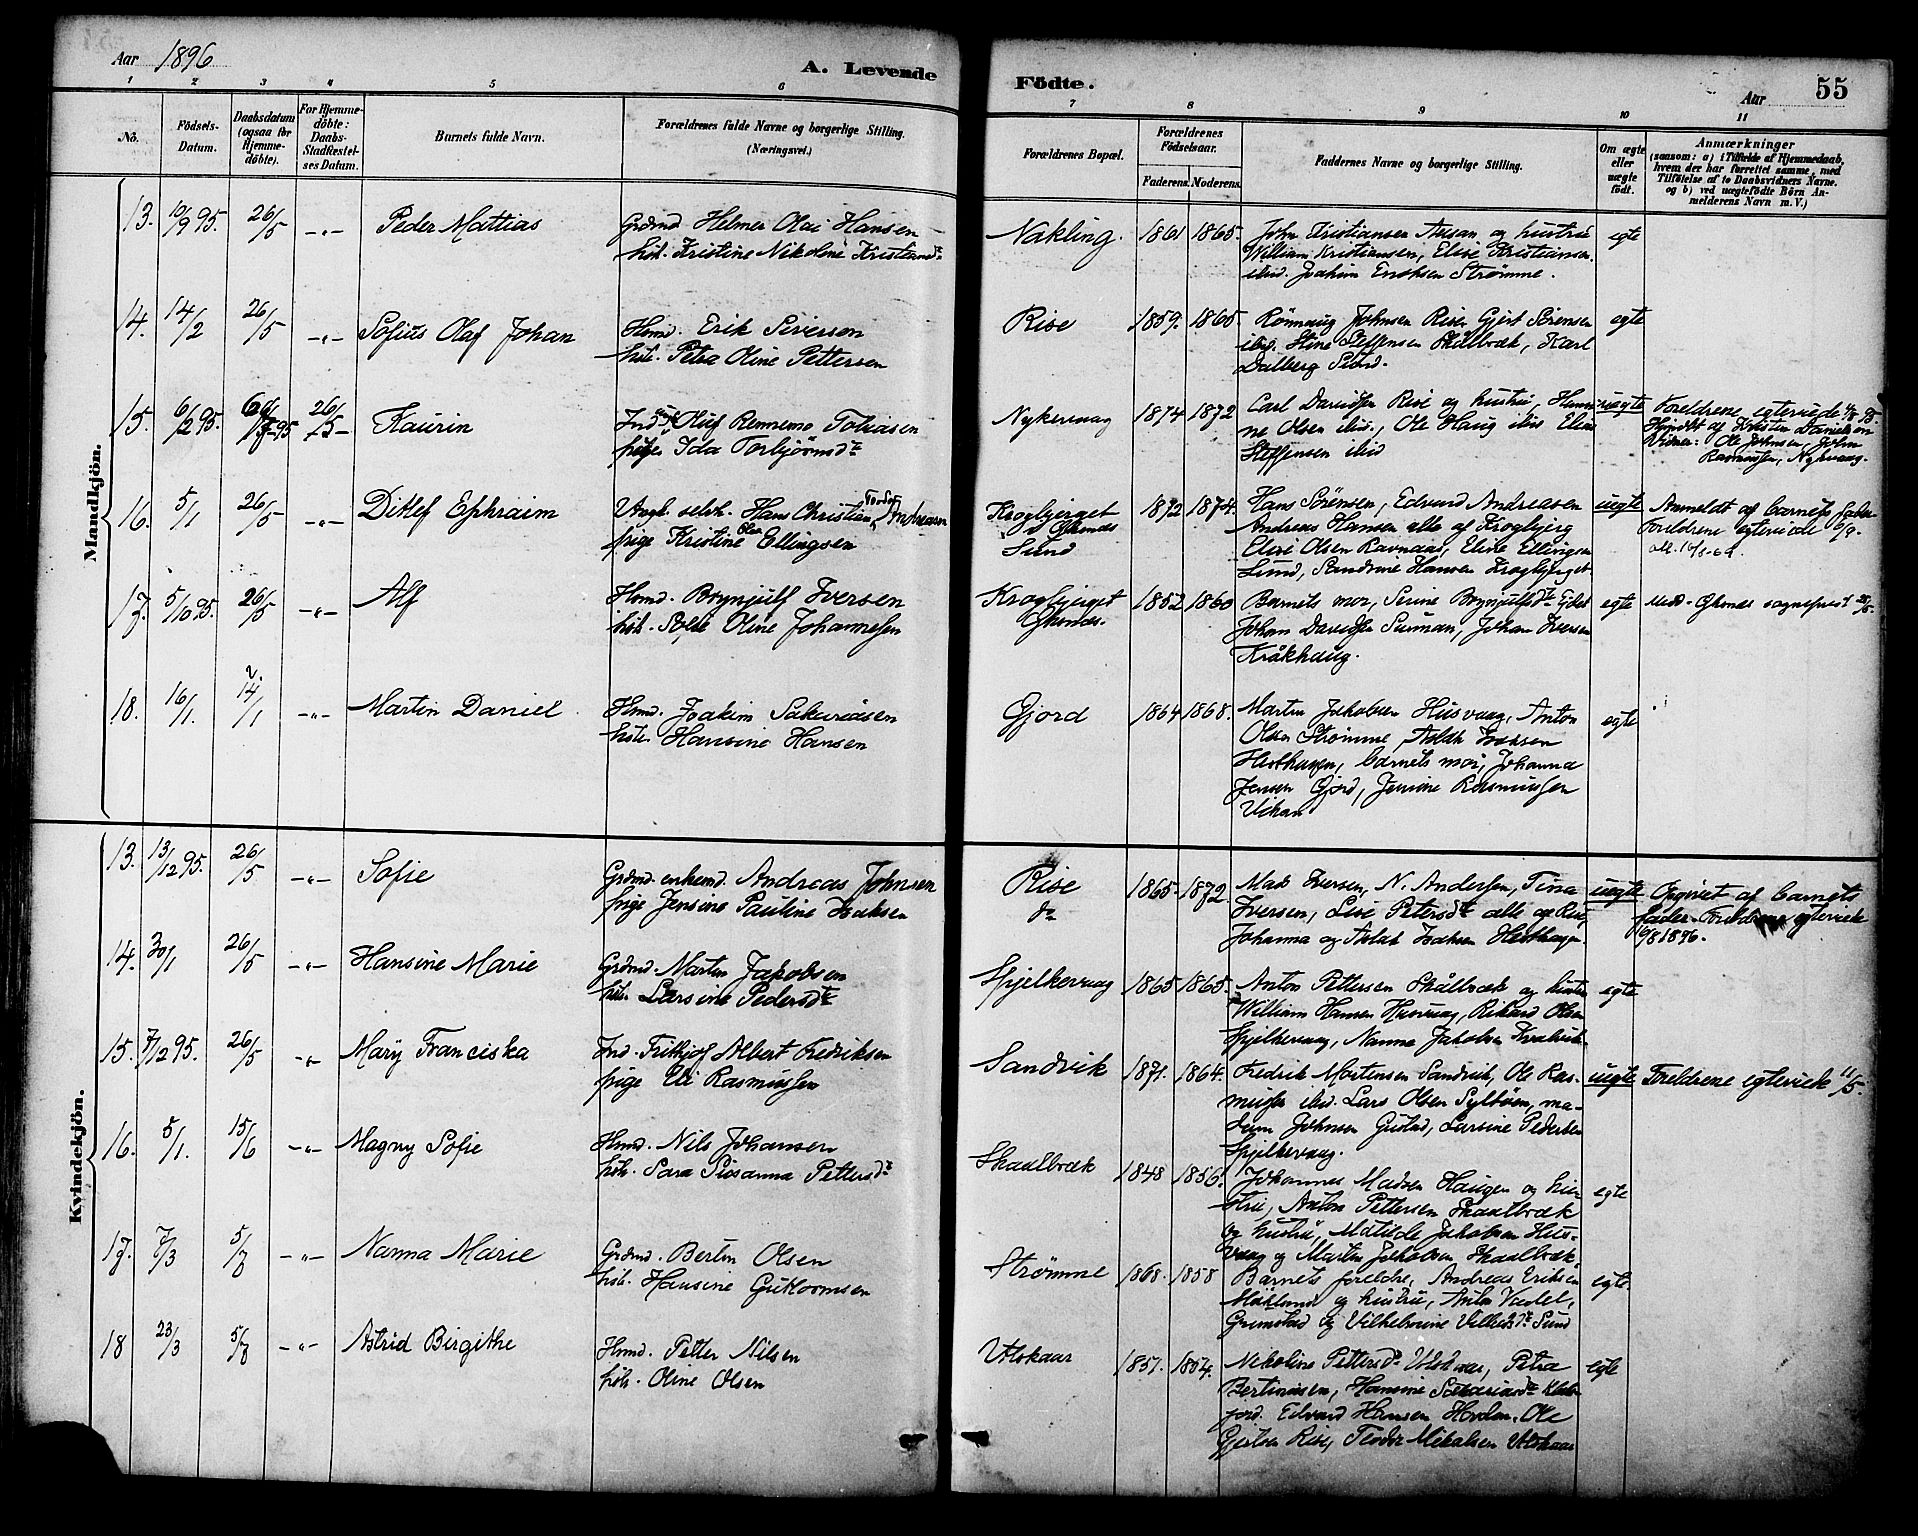 Aar 1896
A. Levende
Födte.
Aar
55
1 2 3 4 5 6 7 8 9 10 11
Nô.
Födsels-Datum.
Daabsdatum (ogsaa for Hjemme-döbte).
For Hjemme-döbte: Daabs-Stadfæstel-ses Datum.
Barnets fulde Navn.
Forældrenes fulde Navne og borgerlige Stilling. (Næringsvei.)
Forældrenes Bopæl.
Forældrenes Födselsaar.
Faderens. Moderens.
Faddernes Navne og borgerlige Stilling.
Om ægte eller uægte födt.
Anmærkninger
(saasom: a) i Tilfælde af Hjemmedaab,
hvem der har forrettet samme, med
Tilföielse af to Daabsvidners Navne,
og b) ved uægtefödte Börn An-
melderens Navn m. V.)
Mandkjön.
13. 10/9 95. 26/5 -"- Peder Mattias
Grdmd. Helmer Olai Hansen
hst. Kristine Nikoline Kristiansdt
Nakling. 1861 1865.
John Kristiansen Ausan og hustru
William Kristiansen, Elise Kristiansen
ibid. Joakim Enoksen Strømme.
egte
14. 14/2 26/5 -"- Sofius Olaf Johan
Hmd. Erik Sivertsen
hst. Petra Oline Pettersen
Rise 1859. 1865.
Rönnaug Johnsen Rise, Gjert Sörensen
ibid. Stine Steffensen Skålbræk, Karl
Dalberg Sund.
egte
15. 6/2 95. 26/5 Kaurin
Ind. Oluf Rennemo Tobiasen
pige Ida Torbjörnsdt
Nykvaag 1874 1872
Carl Davidsen Rise og hustru, Hansi-
ne Olsen ibid., Ole Haug ibid Elise
Steffensen ibid
uegte
Foreldrene egteviede 4/8 95.
Hjmdbt af Kristen Danielsen
Vidner: Ole Johnsen, John
Rasmussen, Nykvaag.
16. 5/1 26/5 -"- Ditlef Ephraim
Ungk. selvk. Hans Christian Teodor Andreasen
pige Kristine Olea Ellingsen
Krogbjerget
Öksnes
Sund
1872 1874.
Hans Sörensen, Edvard Andreasen
Andreas Hansen alle af Krogbjerg
Elise Olsen Ravnaas, Elise Ellingsen
Sund, Sandrine Hansen Krogbjerget
uegte
Anmeldt af barnets fader
Foreldrene egteviede 6/9.
17. 5/10 95. 26/5 -"- Alf
Hmd. Brynjulf Iversen
hst. Oline Johannesen
Krogbjerget
Öksnes.
1852 1860
Barnets mor, Serine Brynjulfsdt
Johan Davidsen Surman, Johan Iversen
Kråkhaug.
egte
Medd. Öksnes sogneprest
18. 16/1 14/1 -"- Martin Daniel
Hmd. Joakim Sakariasen
hst. Hansine Hansen
Gjord 1864 1868.
Martin Jakobsen Husvaag, Anton
Olsen Strømme, Aslak Isaksen
Hesthagen, barnets mor, Johanna
Jensen Gjord, Jensine Rasmussen
Vikan
egte
Kvindekjön.
13. 13/12 95. 26/5 -"- Sofie
Grdmd. enkemd. Andreas Johnsen
pige Jensine Pauline Isaksen
Rise
do
1865. 1872.
Mads Iversen, N. Andersen, Tina
Iversen, Lise Petersdt alle af Rise
Johanna og Aslak Isaksen Hesthagen
uegte
Opgivet af barnets
fader. Foreldrene egteviede
16/8 1896.
14. 30/1 26/5 -"- Hansine Marie
Grdmd. Martin Jakobsen
hst. Larsine Pedersdt
Spjelkervaag 1865 1865.
Anton Pettersen Skålbræk og hustru
William Hansen Husvaag, Rikard Olsen
Spjelkevaag, Nanna Jakobsen
egte
15. 7/12 95. 26/5 -"- Mary Franciska
Ind. Fritkjof Albert Fredriksen
pige Eli Rasmussen
Sandvik 1871. 1864.
Fredrik Mortensen Sandvik, Ole Ras-
mussen ibid. Lars Olsen Sylböen, ma-
dam Johnsen Gustad, Larsine Pedersen
Spjelkevaag.
uegte
Foreldrene egteviede 11/5.
16. 5/1. 15/6 -"- Magny Sofie
Hmd. Nils Johansen
hst. Sara Susanna Pettersdt
Skaalbræk 1848 1856.
Johannes Madsen Haugen og hu-
stru, Anton Pettersen Skaalbræk
og hustru, Matilde Jakobsen Hus-
vaag og Martin Jakobsen Skaalbræk.
egte
17. 7/3 5/7 -"- Nanna Marie
Grdmd. Bertin Olsen
hst. Hansine Guttormsen
Strømme 1868. 1858
Barnets foreldre, Andreas Eriksen
og hustru, Anton
Grimstad og Sund
egte.
18 23/3 5/7 -"- Astrid Birgithe
Hmd. Petter Nilsen
hst. Oline Olsen
Utskaar 1851. 1854.
Nikoline Pettersdt Utskaar, Petra
Bertinusen, Hansine Sakariasdt
fjord. Edvard Hansen Hovden, Ole
Gjertsen Rise, Teodor Mikalsen Utskaar
egte